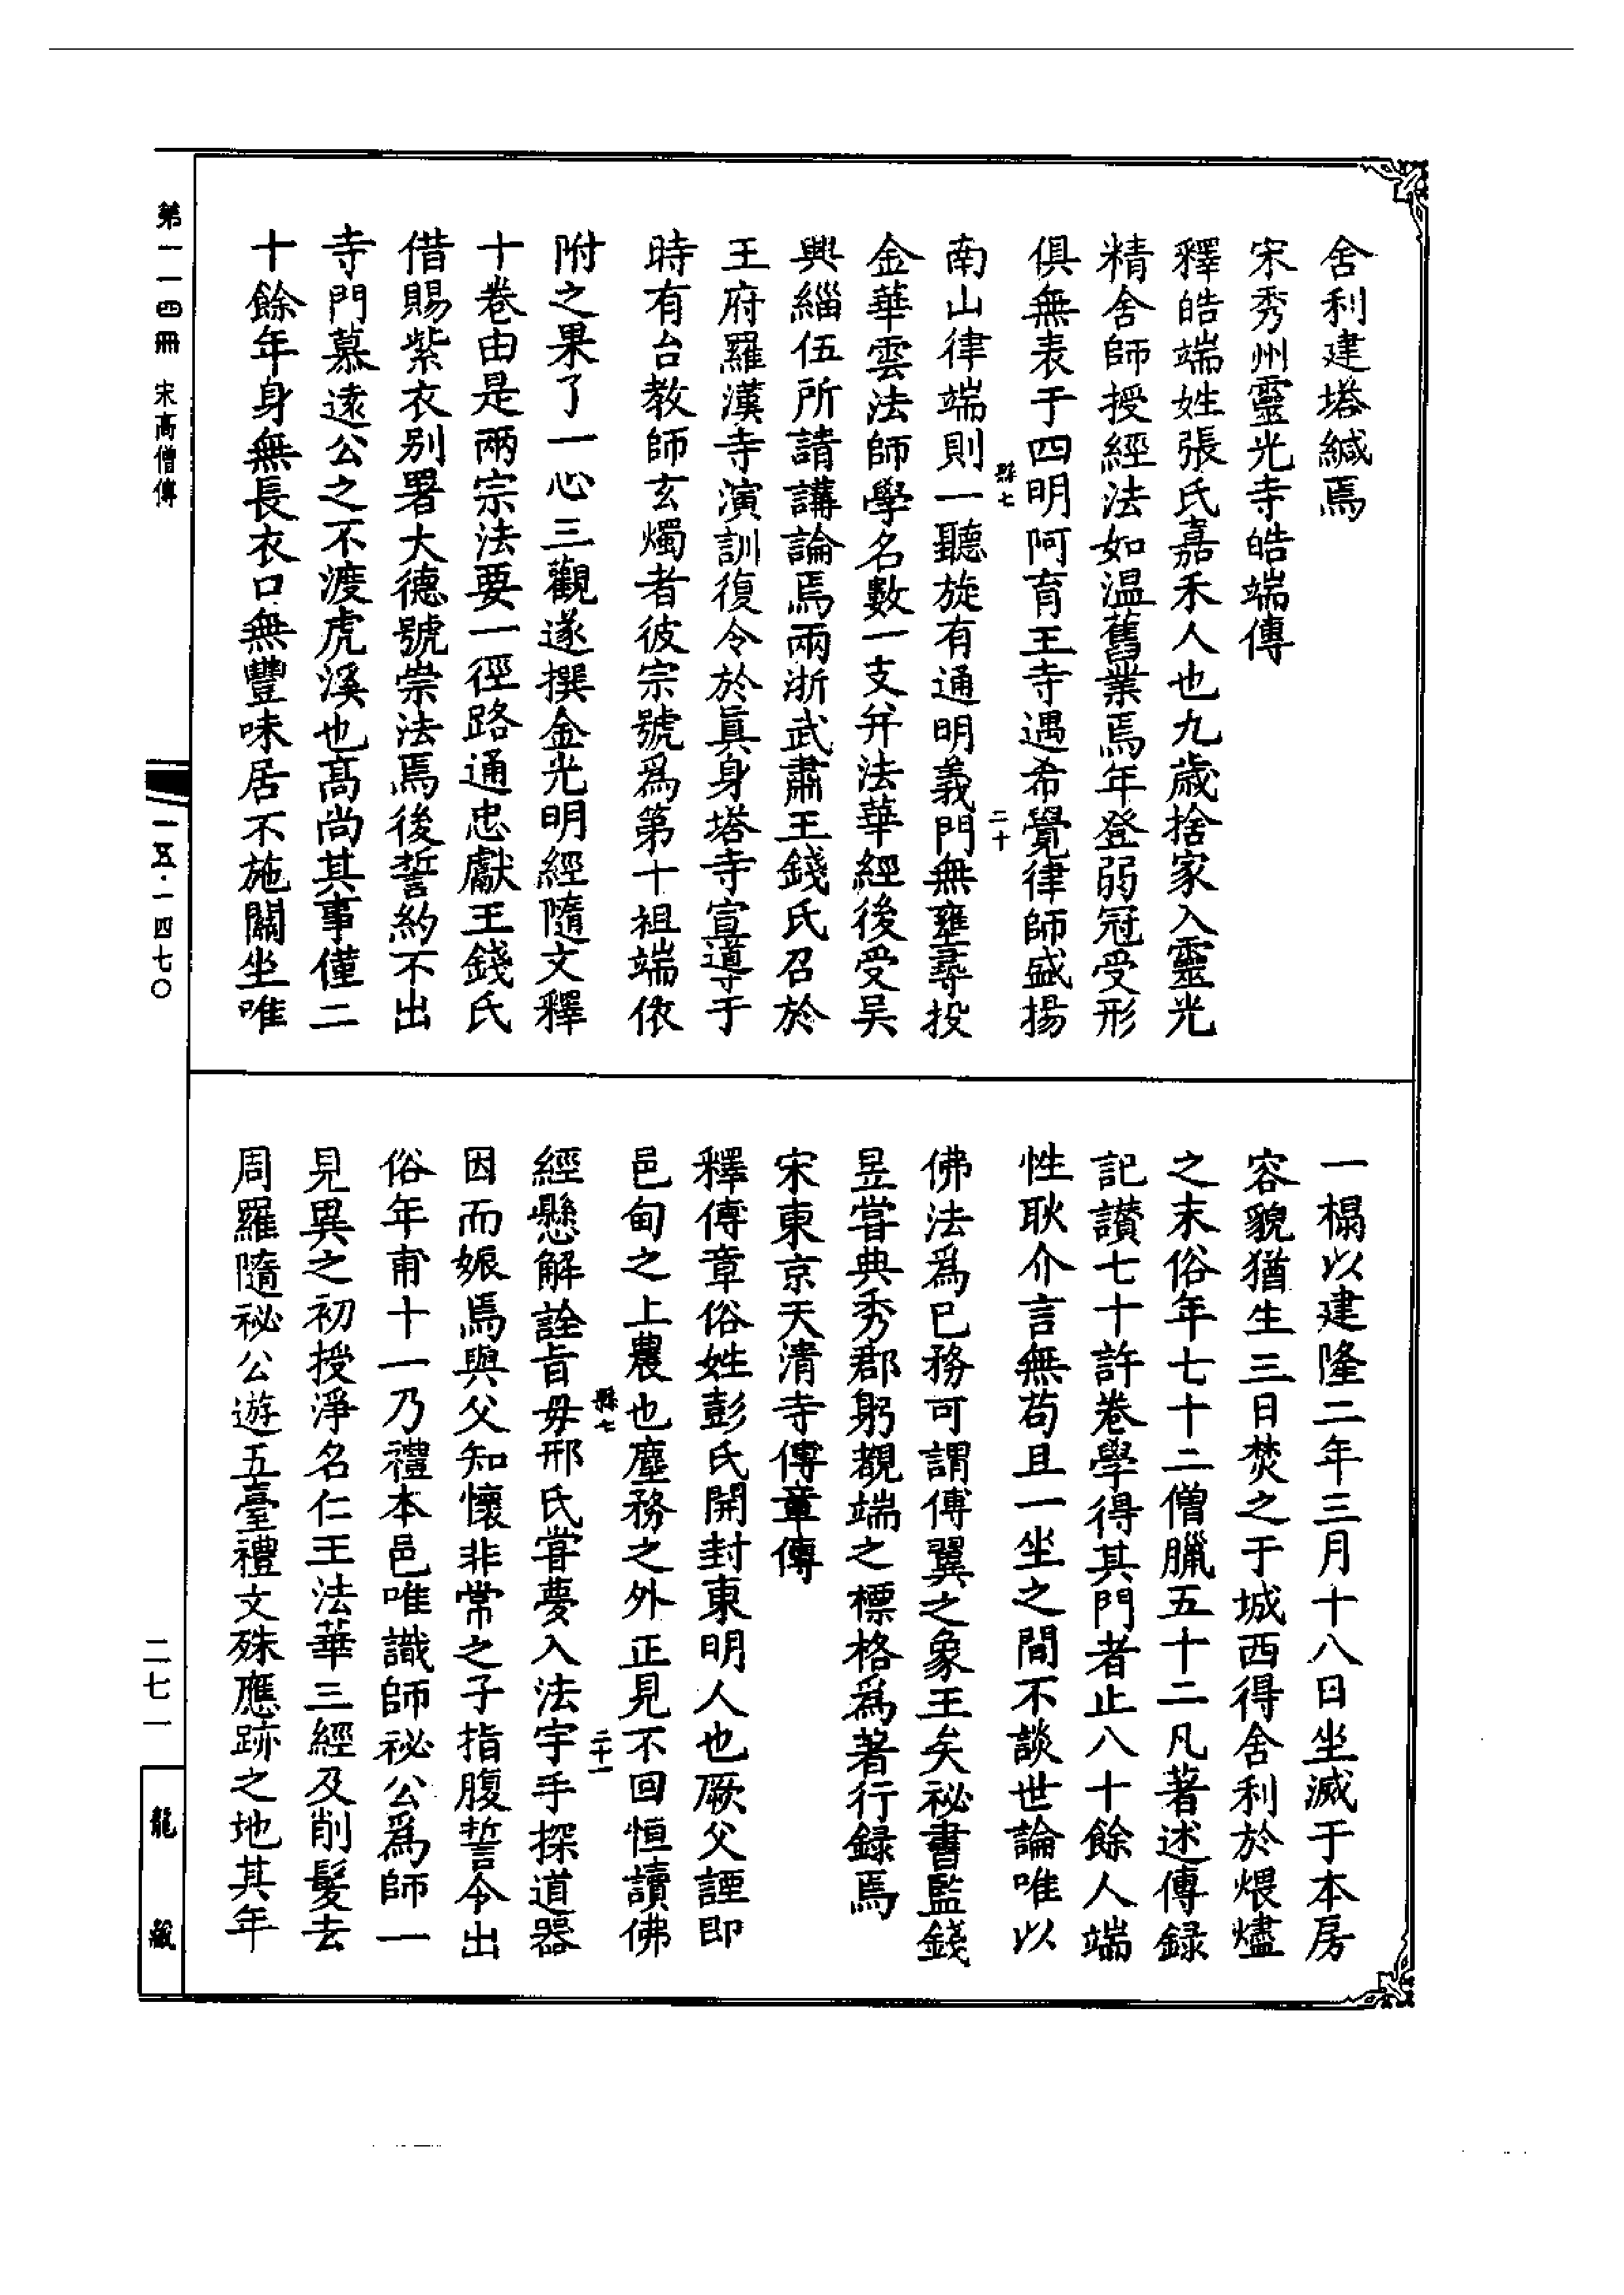 舍利建塔緘焉
宋秀州靈光寺皓端傳
釋皓端姓張氏嘉禾人也九歳捨家入靈光
精舍師授經法如温舊業焉年登弱冠受形
俱無表于四明阿育王寺遇希覺律師盛揚
縣七
二十
南山律端則一聽旋有通明義門無壅尋投
金華雲法師學名數一支并法華經後受吴
興緇伍所請講論焉兩浙武肅王錢氏召於
王府羅漢寺演訓復令於真身塔寺宣導于
時有台教師玄燭者彼宗號爲第十祖端依
附之果了一心三觀遂撰金光明經隨文釋
十卷由是兩宗法要一徑路通忠獻王錢氏
借賜紫衣别署大德號崇法焉後誓約不出
寺門慕遠公之不渡虎溪也高尚其事僅二
十餘年身無長衣口無豐味居不施關坐唯
一榻以建隆二年三月十八日坐滅于本房
容貌猶生三日焚之于城西得舍利於煨燼
之末俗年七十二僧臘五十二凡著述傳録
記讃七十許卷學得其門者止八十餘人端
性耿介言無苟且一坐之間不談世論唯以
佛法爲已務可謂傅翼之象王矣秘書監錢
昱嘗典秀郡躬覩端之標格爲著行録焉
宋東京天清寺傳章傳
釋傳章俗姓彭氏開封東明人也厥父諲即
邑甸之上農也塵務之外正見不回恒讀佛
縣七
二十一
經懸解詮旨毋邢氏甞夢入法宇手探道器
因而娠焉與父知懷非常之子指腹誓令出
俗年甫十一乃禮本邑唯識師祕公爲師一
見異之初授淨名仁王法華三經及削髮去
周羅隨祕公遊五臺禮文殊應跡之地其年
第一一四冊 宋高僧傳
一五·一四七〇
二七一
龍藏